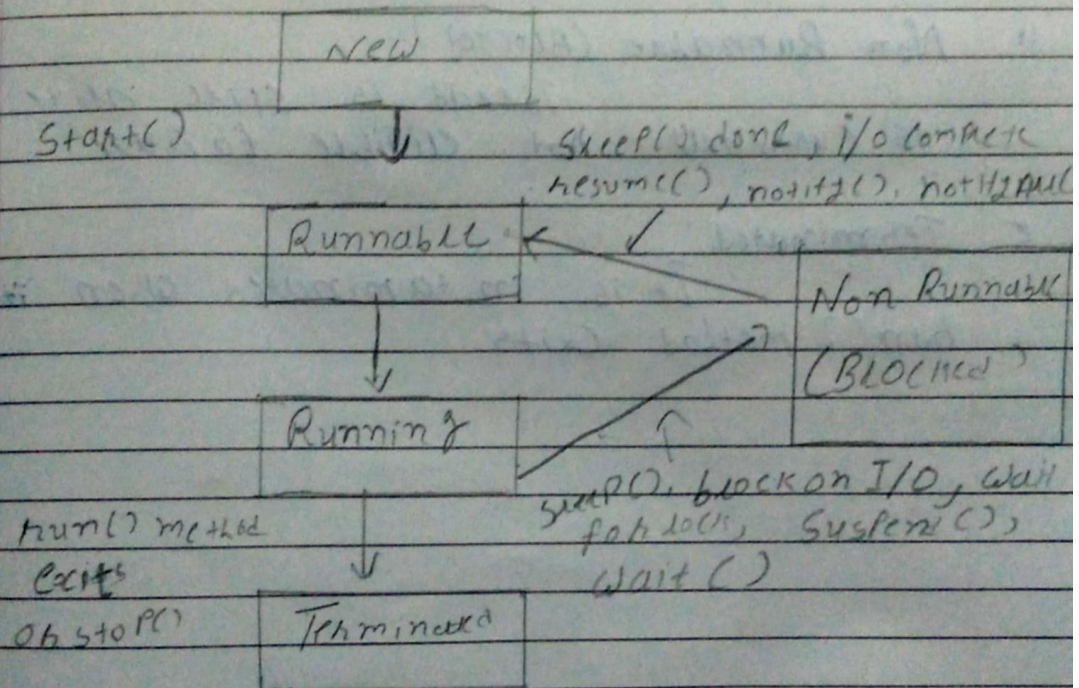 New
Start()
sleep() done, i/o complete
resume(), notify(), notifyAll(
Runnable
Non Runnable
(Blocked)
Running
sleep(), block on I/O, wait
for lock, suspend(),
wait()
run() method
exits
or stop()
Terminated